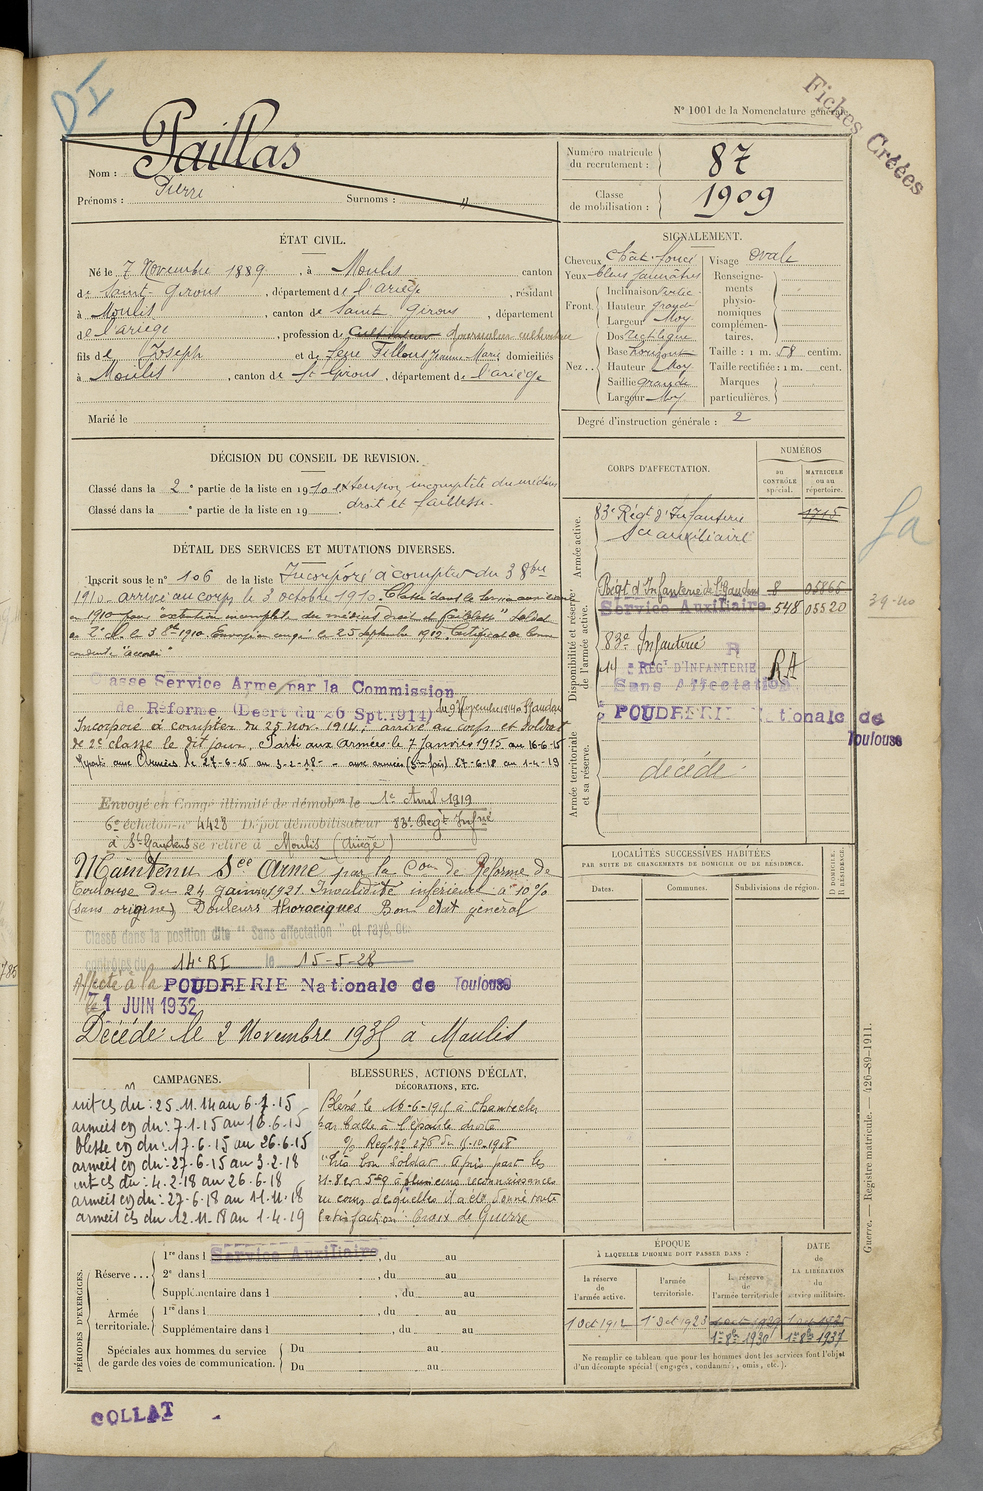 DI
N° 1001 de la Nomenclature générale.
Fiches Créées
Nom : Paillas
Prénoms : Pierre Surnoms : "
Numéro matricule du recrutement : 87
Classe de mobilisation : 1909
ÉTAT CIVIL.
Né le 7 Novembre 1889, à Moulis canton
de Saint-Girons, département de l'ariège, résidant
à Moulis, canton de Saint Girons, département
de l'ariège, profession de Cultivateur Journalier cultivateur
fils de Joseph et de Jeanne-Marie domiciliés
à Moulis, canton de St Girons, département de l'ariège
Marié le
SIGNALEMENT.
Cheveux chât. foncé
Yeux bleus jaunâtres
Front. Inclinaison Vertic.
Hauteur grande
Largeur Moy.
Nez. Dos Rectiligne
Base horizont
Hauteur Moy
Saillie grande
Largeur Moy
Visage ovale
Renseignements physionomiques complémentaires.
Taille : 1 m. 58 centim.
Taille rectifiée : 1 m. cent.
Marques particulières.
Degré d'instruction générale : 2
DÉCISION DU CONSEIL DE REVISION.
Classé dans la 2e partie de la liste en 1910 extension incomplète du médius
Classé dans la e partie de la liste en 19 droit et faiblesse.
DÉTAIL DES SERVICES ET MUTATIONS DIVERSES.
Inscrit sous le n° 106 de la liste Incorporé à compter du 3 8bre
1910. arrivé au corps le 3 octobre 1910. Classé dans le service auxiliaire
en 1910 pour "extension incomplète du médius droit et faiblesse" Soldat
de 2e cl. le 3 8bre 1910. Envoyé en congé le 25 Septembre 1912. Certificat de bonne
conduite "accordé"
Classe Service Armé par la Commission
de Réforme (Décret du 26 Spt.1914)
Incorporé à compter du 25 nov. 1914; arrivé au corps et soldat
de 2e classe le dit jour. Parti aux armées le 7 Janvier 1915 au 16-6-15
Reparti aux Armées le 27-6-15 au 3-2-18 - aux armées 27-6-18 au 1-4-19
Envoyé en Congé illimité de démobon le 1er Avril 1919
6e échelon n° 4423 Dépôt démobilisateur 83e Regt Infie
à St Gaudens se retire à Moulis (Ariège)
Maintenu Sce Armé par la Con de Réforme de
Toulouse du 24 janvier 1921. Invalidité inférieure à 10%
(sans origine) Douleurs thoraciques Bon état général
Classé dans la position dite "Sans affectation" et rayé des
contrôles du 14e RI le 15-5-28
Affecté à la POUDRERIE Nationale de Toulouse
le 1 JUIN 1932
Décédé le 2 Novembre 1935 à Moulis
CORPS D'AFFECTATION.
NUMÉROS
au CONTRÔLE spécial.
MATRICULE ou au répertoire.
Armée active.
83e Régt d'Infanterie 1715
Sce auxiliaire
Disponibilité et réserve de l'armée active.
Régt d'Infanterie de St Gaudens 8 05865
Service Auxiliaire 548 05520
83e Infanterie R
14e RÉGt D'INFANTERIE RA
Sans Affectation
Armée territoriale et sa réserve.
POUDRERIE Nationale de
Toulouse
décédé
39-40
LOCALITÉS SUCCESSIVES HABITÉES
PAR SUITE DE CHANGEMENTS DE DOMICILE OU DE RÉSIDENCE.
Dates. Communes. Subdivisions de région.
D DOMICILE. R RÉSIDENCE.
CAMPAGNES.
int cs du : 25.11.14 au 6.1.15
armées cd du : 7.1.15 au 16.6.15
blessé cd du : 17.6.15 au 26.6.15
armées cd du : 27.6.15 au 3.2.18
int cs du : 4.2.18 au 26.6.18
armées cd du : 27.6.18 au 11.11.18
armées cs du 12.11.18 au 1.4.19
BLESSURES, ACTIONS D'ÉCLAT,
DÉCORATIONS, ETC.
Blessé le 16-6-1915 à Chantecler
par balle à l'épaule droite
O/ Regt n° 276 du 11-10-1918
"Très bon Soldat. A pris part les
à plusieurs reconnaissances
au cours desquelles il a donné toute
satisfaction" Croix de Guerre
PÉRIODES D'EXERCICES.
Réserve... 1re dans l Service Auxiliaire, du au
2e dans l , du au
Supplémentaire dans l , du au
Armée territoriale. 1re dans l , du au
Supplémentaire dans l , du au
Spéciales aux hommes du service de garde des voies de communication. Du au
Du au
ÉPOQUE
À LAQUELLE L'HOMME DOIT PASSER DANS :
la réserve de l'armée active. l'armée territoriale. la réserve de l'armée territoriale.
DATE de LA LIBÉRATION du service militaire.
1 Oct 1912 1 Oct 1923
1er 8bre 1930 1er 8bre 1937
Ne remplir ce tableau que pour les hommes dont les services font l'objet
d'un décompte spécial (engagés, condamnés, omis, etc.).
Guerre. — Registre matricule. — 426-89-1911.
COLLAT
785